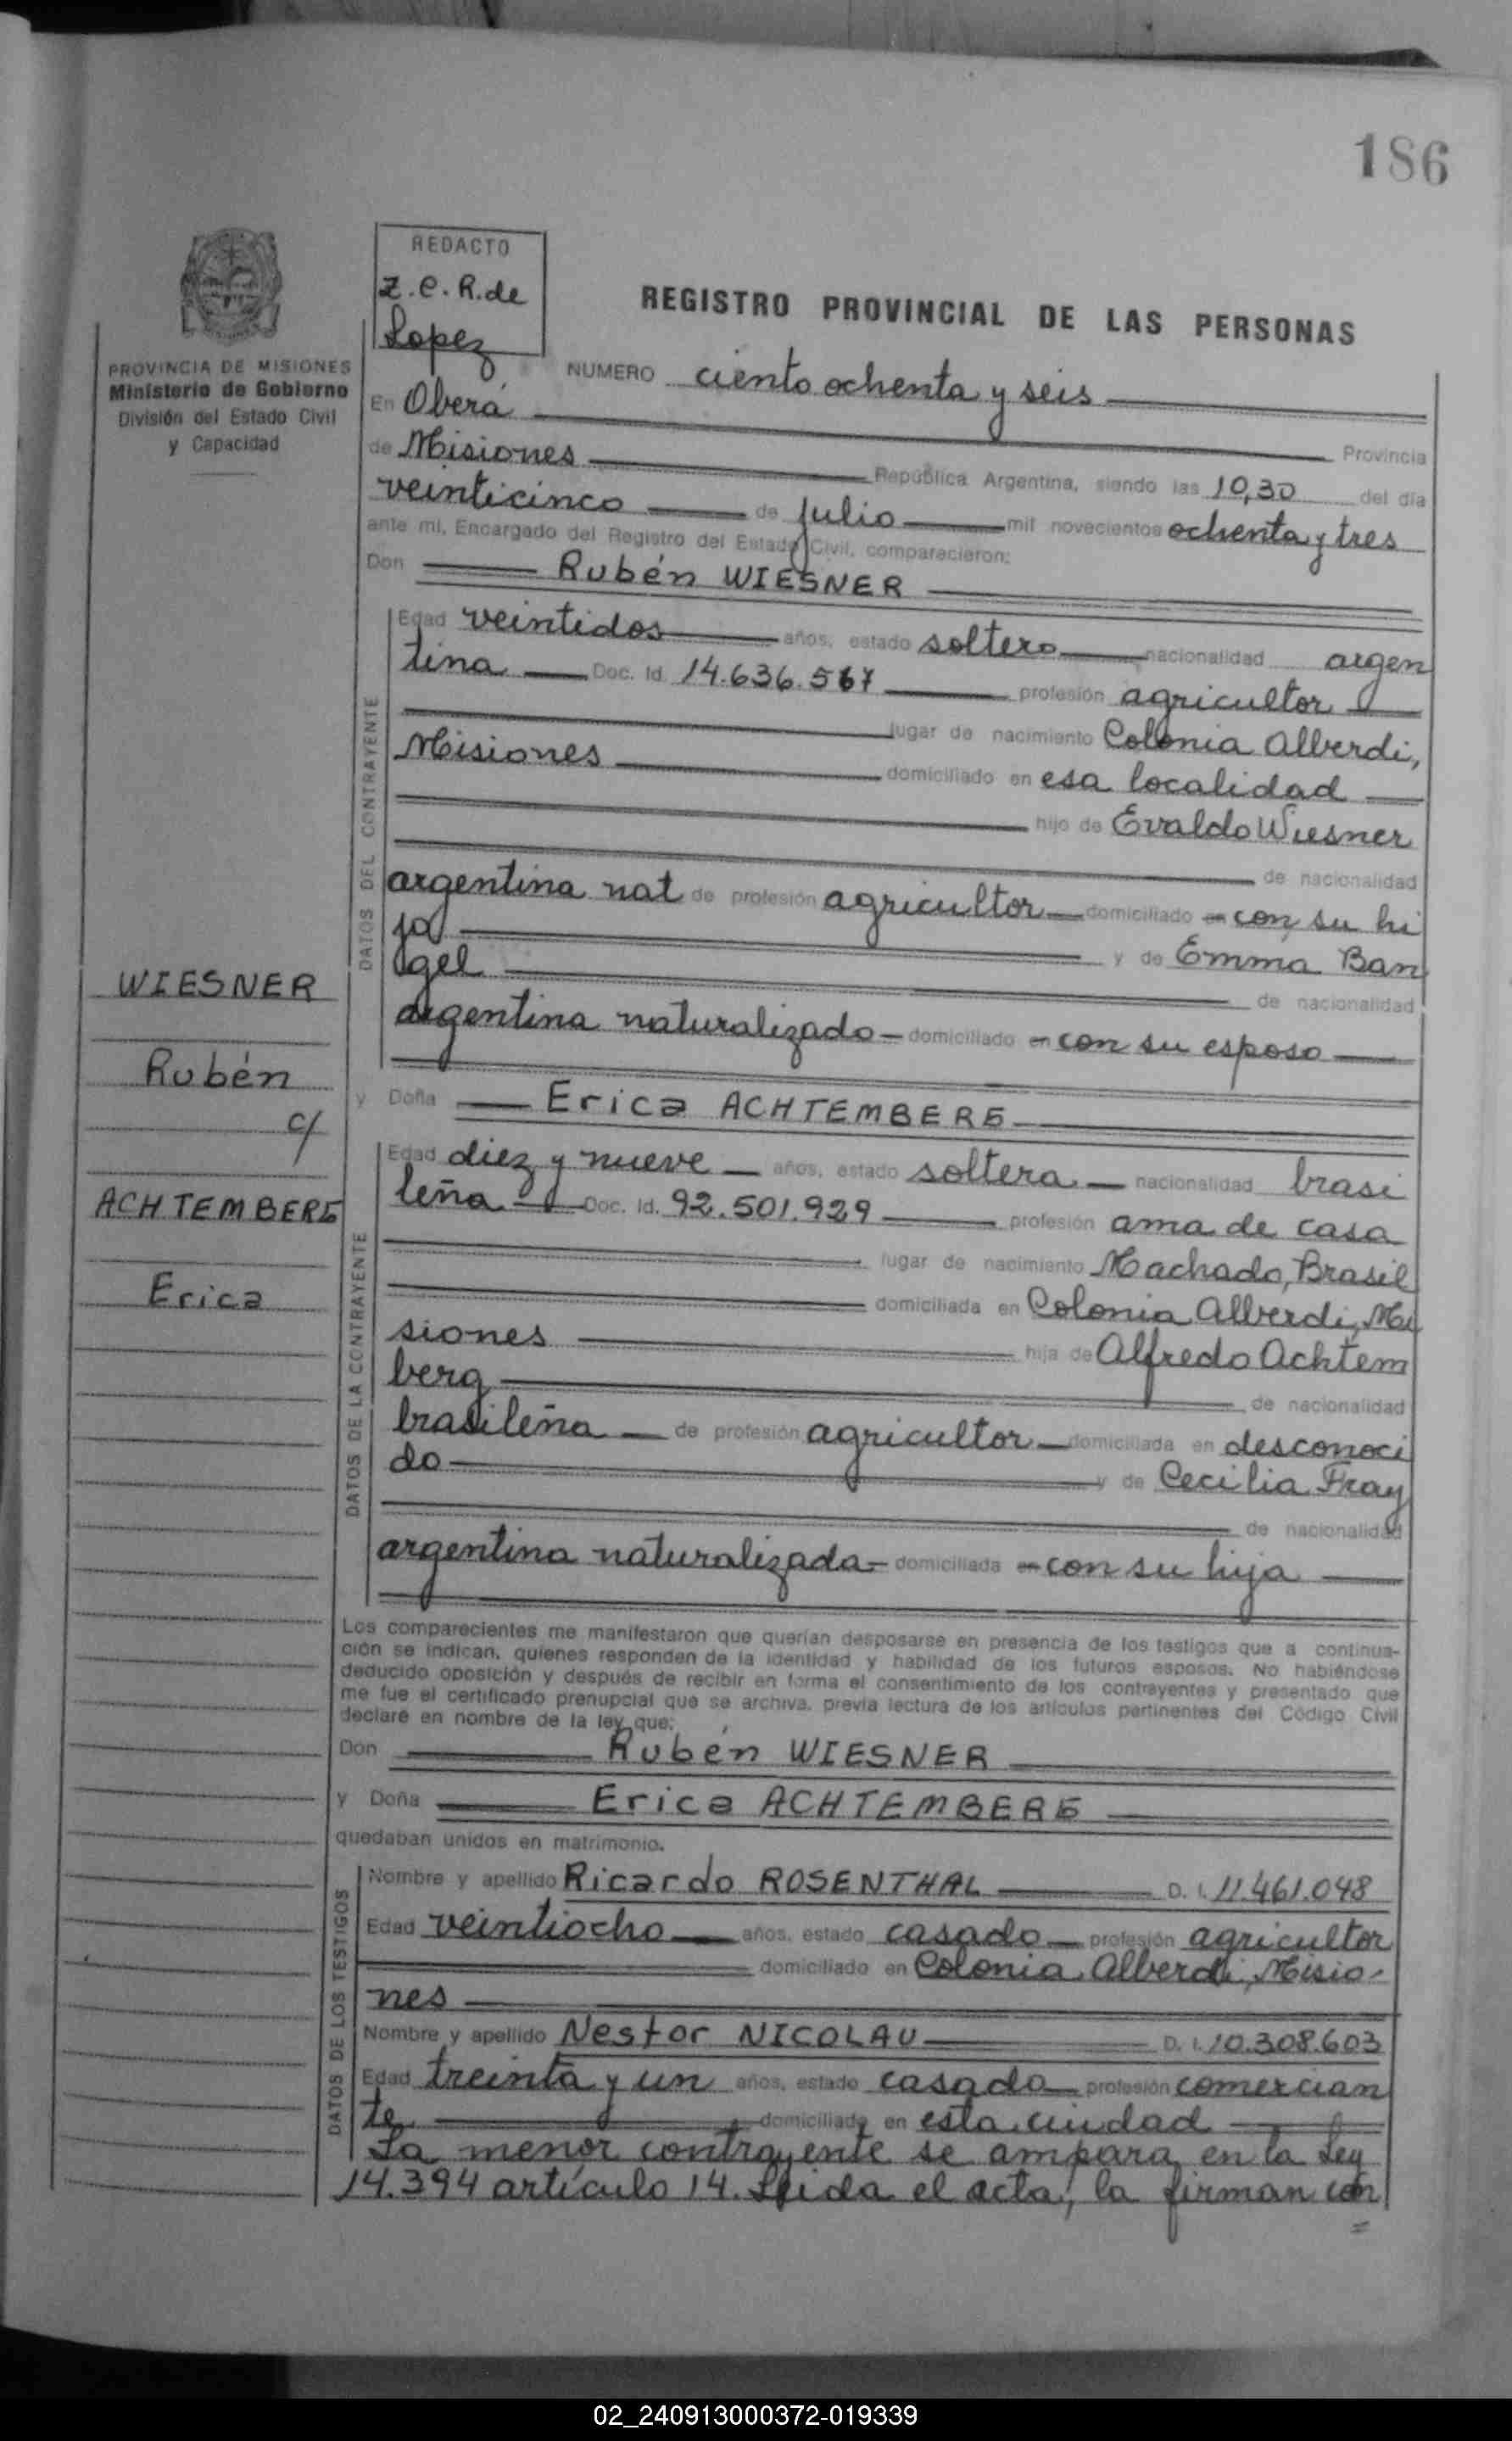 186
REDACTO
Z.C.R.de
Lopez
REGISTRO PROVINCIAL DE LAS PERSONAS
PROVINCIA DE MISIONES
Ministerio de Gobierno
División del Estado Civil
y Capacidad
NUMERO ciento ochenta y seis
En Oberá
de Misiones Provincia
República Argentina, siendo las 10,30 del día
veinticinco de julio mil novecientos ochenta y tres
ante mí, Encargado del Registro del Estado Civil, comparecieron:
Don Rubén WIESNER
DATOS DEL CONTRAYENTE
Edad veintidos años, estado soltero nacionalidad argen
tina Doc. Id. 14.636.567 profesión agricultor
lugar de nacimiento Colonia Alberdi,
Misiones domiciliado en esa localidad
hijo de Evaldo Wiesner
de nacionalidad
argentina nat de profesión agricultor domiciliado en con su hi
jo y de Emma Ban
gel de nacionalidad
argentina naturalizado domiciliado en con su esposo
y Doña Erica ACHTEMBERG
WIESNER
Rubén
c/
ACHTEMBERG
Erica
DATOS DE LA CONTRAYENTE
Edad diez y nueve años, estado soltera nacionalidad brasi
leña Doc. Id. 92.501.929 profesión ama de casa
lugar de nacimiento Machado, Brasil
domiciliada en Colonia Alberdi, Mi
siones hija de Alfredo Achtem
berg de nacionalidad
brasileña de profesión agricultor domiciliada en desconoci
do y de Cecilia Fray
de nacionalidad
argentina naturalizada domiciliada en con su hija
Los comparecientes me manifestaron que querían desposarse en presencia de los testigos que a continua-
ción se indican, quienes responden de la identidad y habilidad de los futuros esposos. No habiéndose
deducido oposición y después de recibir en forma el consentimiento de los contrayentes y presentado que
me fue el certificado prenupcial que se archiva, previa lectura de los artículos pertinentes del Código Civil
declaré en nombre de la ley que:
Don Rubén WIESNER
y Doña Erica ACHTEMBERG
quedaban unidos en matrimonio.
DATOS DE LOS TESTIGOS
Nombre y apellido Ricardo ROSENTHAL D. I. 11.461.048
Edad veintiocho años, estado casado profesión agricultor
domiciliado en Colonia Alberdi, Misio-
nes
Nombre y apellido Nestor NICOLAU D. I. 10.308.603
Edad treinta y un años, estado casado profesión comercian
te domiciliado en esta ciudad
La menor contrayente se ampara en la Ley
14.394 artículo 14. Leida el acta, la firman con
02_240913000372-019339